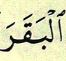 ٱلْبَقَرَ